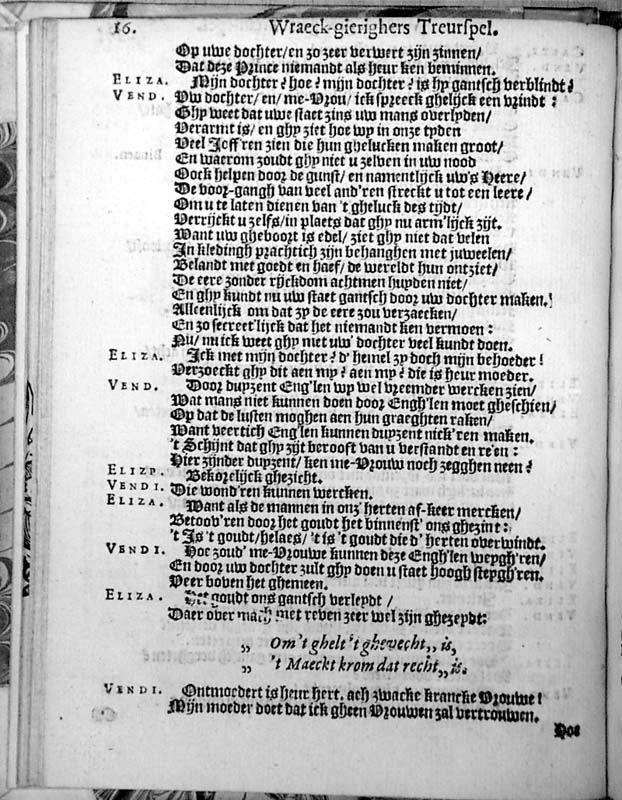 16. Wraeck-gierighers Treurspel.
Op uwe dochter/en zo zeer verwert zijn zinnen/
Dat deze Prince niemandt als heur ken beminnen.
ELIZA. Mijn dochter? hoe? mijn dochter? is hy gantsch verblindt?
VEND. Uw dochter/ en/ me-Vrou/ ick spreeck ghelijck een vrindt:
Ghy weet dat uwe staet zins uw mans overlyden/
Verarmt is/ en ghy ziet hoe wy in onze tyden
Veel Joff'ren zien die hun ghelucken maken groot/
En waerom zoudt ghy niet u zelven in uw nood
Oock helpen door de gunst/ en namentlijck uw's Heere/
De voor-gangh van veel and'ren streckt u tot een leere/
Om u te laten dienen van 't gheluck des tijdt/
Verrijckt u zelfs/in plaets dat ghy nu arm'lijck zijt.
Want uw gheboort is edel/ ziet ghy niet dat velen
In kledingh prachtich zijn behanghen met juweelen/
Belandt met goedt en haef/ de wereldt hun ontziet/
De eere zonder rijckdom achtmen huyden niet/
En ghy kundt nu uw staet gantsch door uw dochter maken.
Alleenlijck om dat zy de eere zou verzaecken/
En zo secreet'lijck dat het niemandt ken vermoen:
Nu/ nu ick weet ghy met uw' dochter veel kundt doen.
ELIZA. Ick met mijn dochter? d' hemel zy doch mijn behoeder!
Verzoeckt ghy dit aen my? aen my? die is heur moeder.
VEND. Door duyzent Eng'len wy wel vreemder wercken zien/
Wat mans niet kunnen doen door Engh'len moet gheschien/
Op dat de lusten moghen aen hun graeghten raken/
Want veertich Eng'len kunnen duyzent nick'ren maken.
't Schijnt dat ghy zijt berooft van u verstandt en re'en:
Hier zijnder duyzent/ ken me-Vrouw noch zegghen neen?
ELIZP. Bekorelijck ghezicht.
VENDI. Die wond'ren kunnen wercken.
ELIZA. Want als de mannen in onz' herten af-keer mercken/
Betoov'ren door het goudt het binnenst' ons ghezint:
't Is 't goudt/helaes/ 't is 't goudt die d' herten overwindt.
VENDI. Hoe zoud' me-Vrouwe kunnen deze Engh'len weygh'ren/
En door uw dochter zult ghy doen u staet hoogh steygh'ren.
Veer boven het ghemeen.
ELIZA. Het goudt ons gantsch verleydt /
Daer over mach met reven zeer wel zijn ghezeydt:
„ Om 't ghelt 't ghevecht„ is,
„ 't Maeckt krom dat recht„ is.
VENDI. Ontmoedert is heur hert. ach zwacke krancke Vrouwe!
Mijn moeder doet dat ick gheen Vrouwen zal vertrouwen.
Hoe